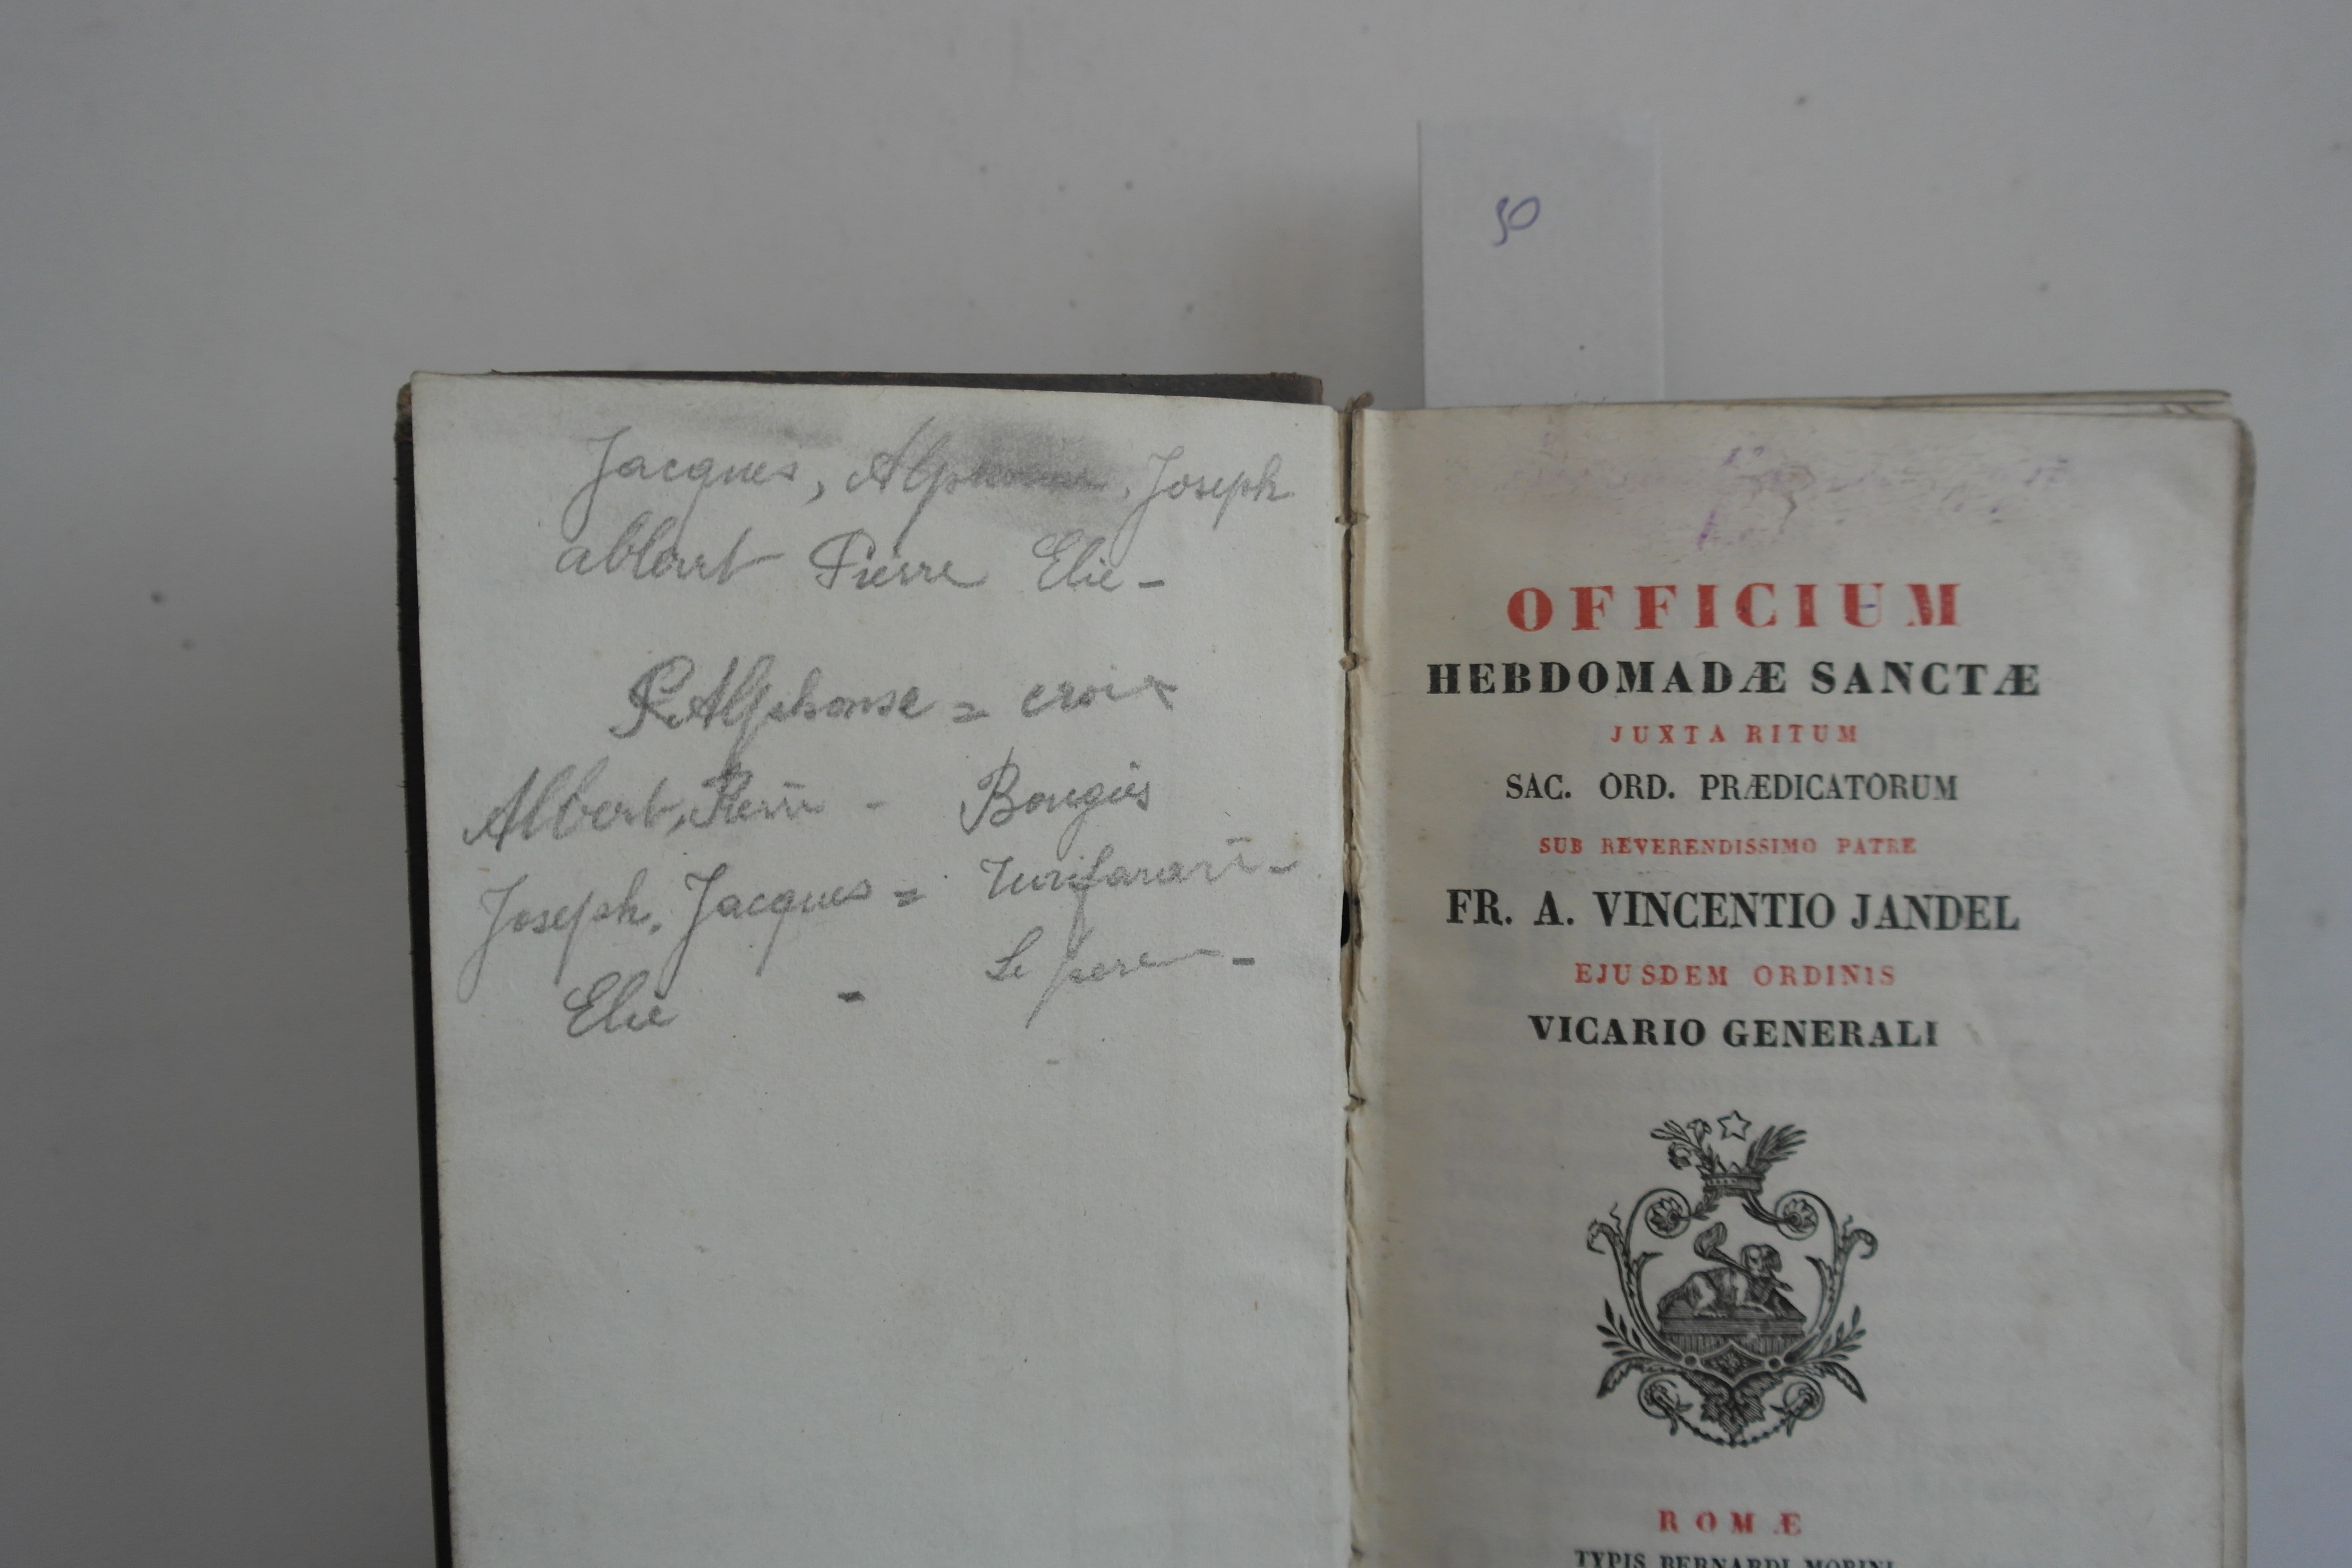 50
Jacques, Alphonse, Joseph
albert Pierre Elie -
P. Alphonse = croix
Albert, Pierre - Bougies
Joseph, Jacques =
Elie - Le pere -
OFFICIUM
HEBDOMADÆ SANCTÆ
JUXTA RITUM
SAC. ORD. PRÆDICATORUM
SUB REVERENDISSIMO PATRE
FR. A. VINCENTIO JANDEL
EJUSDEM ORDINIS
VICARIO GENERALI
ROMÆ
TYPIS BERNARDI MORINI